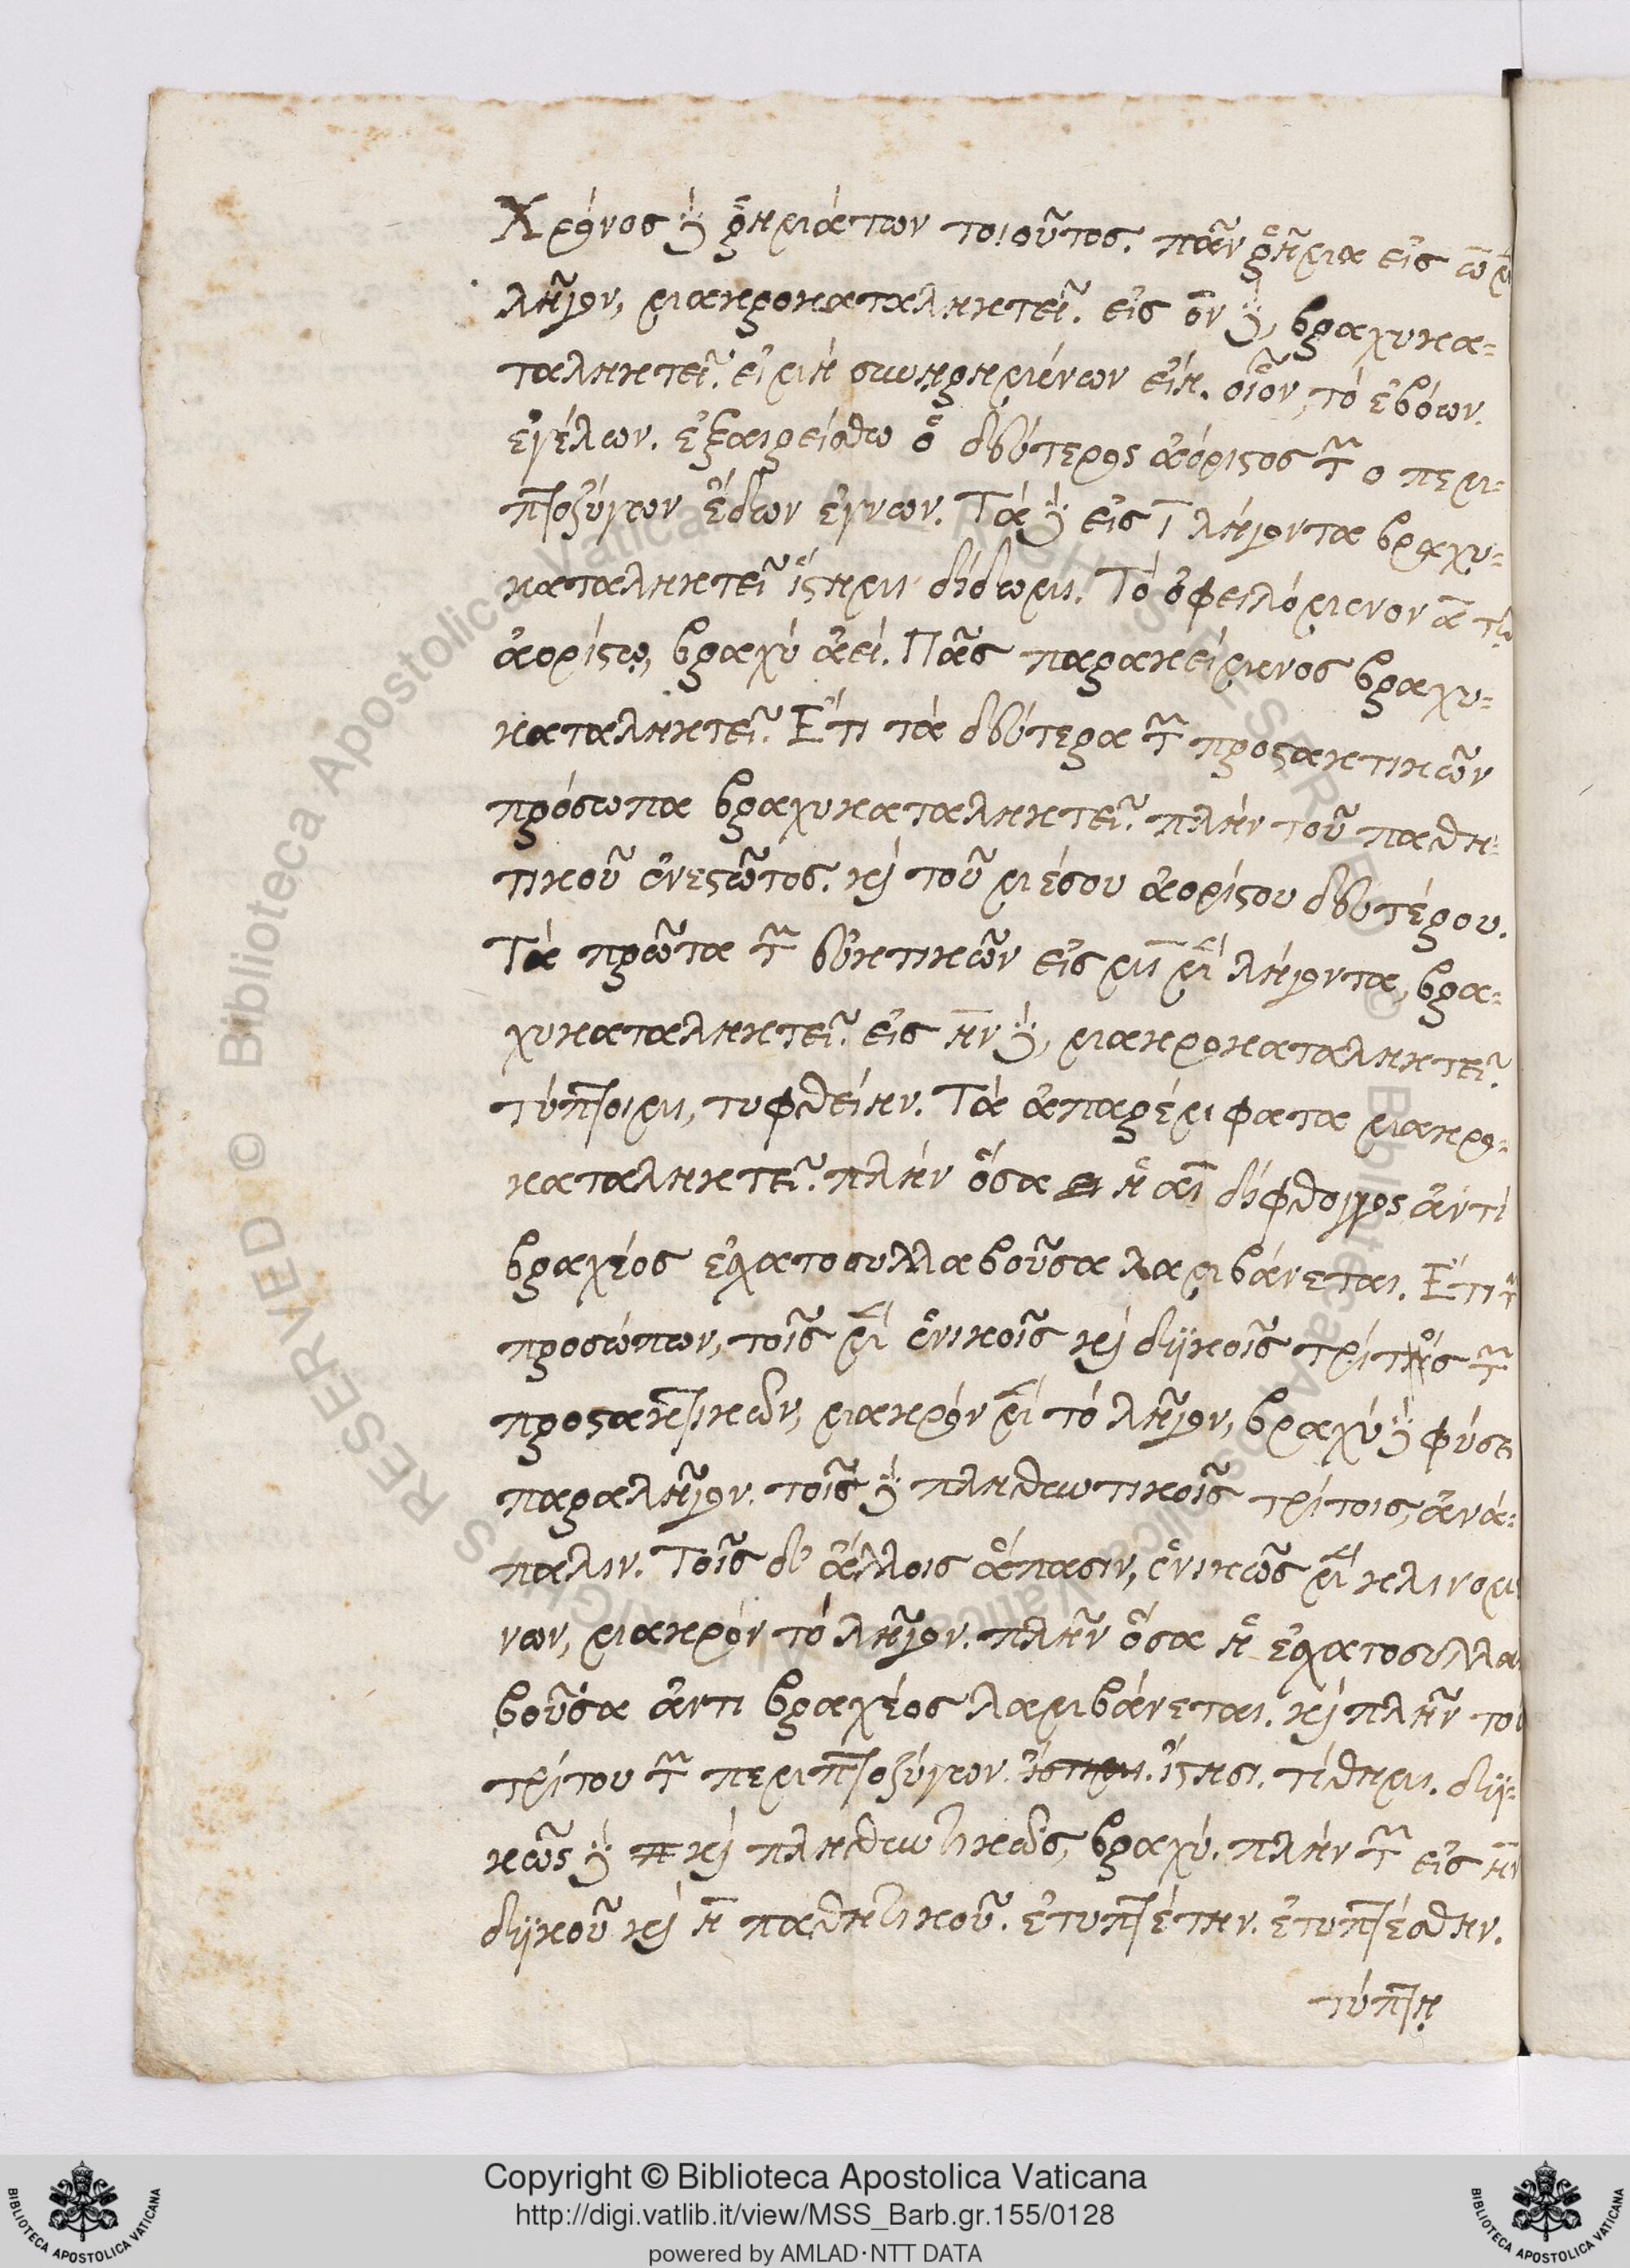 Χρόνος δὲ ῥημάτων τοιοῦτος. πᾶν ῥῆμα εἰς ω μ
λῆγον, μακροκαταληκτεῖ. εἰς ον δὲ, βραχυκα-
ταληκτεῖ. εἰ μὴ συνῃρημένων εἴη. οἷον, τὸ ἐβόων.
ἐγέλων. ἐξαιρείσθω ὁ δεύτερος ἀόριστος τῶν ο περι-
πτοζύγων ἔδων ἔγνων. Τὰ δὲ εἰς ῑ λήγοντα βραχυ-
καταληκτεῖ ἵστημι δίδωμι. Τὸ ὀφειλόμενον ᾱ τῷ
ἀορίστῳ, βραχὺ ἀεί. Πᾶς παρακείμενος βραχυ-
καταληκτεῖ. Ἔτι τὰ δεύτερα τῶν προστακτικῶν
πρόσωπα βραχυκαταληκτεῖ. πλὴν τοῦ παθη-
τικοῦ ἐνεστῶτος. καὶ τοῦ μέσου ἀορίστου δευτέρου.
Τὰ πρῶτα τῶν εὐκτικῶν εἰς μι μὲν λήγοντα, βρα-
χυκαταληκτεῖ. εἰς ην δὲ, μακροκαταληκτεῖ.
τύπτοιμι, τυφθείην. Τὰ ἀπαρέμφατα μακρο-
καταληκτεῖ. πλὴν ὅσα ἡ αι δίφθογγος ἀντὶ
βραχέος ἐσχατοσυλλαβοῦσα λαμβάνεται. Ἔτι τῶν
προσώπων, τοῖς μὲν ἑνικοῖς καὶ δυϊκοῖς τρίτοις τῶν
προστακτικῶν, μακρὸν μὲν τὸ λῆγον, βραχὺ δὲ φύσει
παραλῆγον. τοῖς δὲ πληθυντικοῖς τρίτοις, ἀνά-
παλιν. Τοῖς δ' ἄλλοις ἅπασιν, ἑνικῶς μὲν κλινομ
νων, μακρὸν τὸ λῆγον. πλὴν ὅσα ἡ ἐσχατοσυλλα
βοῦσα ἀντὶ βραχέος λαμβάνεται. καὶ πλὴν τοῦ
τρίτου τῶν περιπτοζύγων. ἵστημι. ἵστησι. τίθημι. δυϊ-
κῶς δὲ π καὶ πληθυντικῶς, βραχύ. πλὴν τῶν εἰς ην
δυϊκοῦ καὶ ἢ παθητικοῦ. ἐτυπτέτην. ἐτυπτέσθην.
τύπτῃ
Copyright © Biblioteca Apostolica Vaticana
http://digi.vatlib.it/view/MSS_Barb.gr.155/0128
powered by AMLAD·NTT DATA